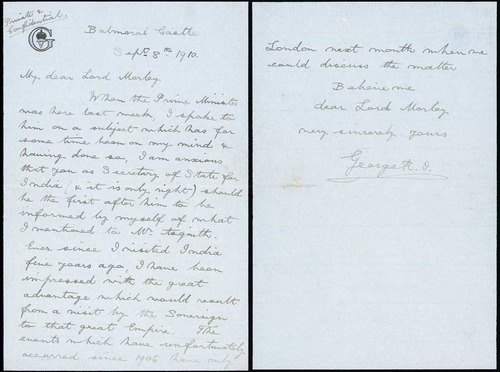 Private &
Confidential
G
Balmoral Castle
Sept. 8th 1910.
My dear Lord Morley
When the Prime Minister
was here last week, I spoke to
him on a subject which has for
some time been on my mind &
having done so, I am anxious
that you as Secretary of State for
India (& it is only right) should
be the first after him to be
informed by myself of what
I mentioned to Mr. Asquith.
Ever since I visited India
five years ago, I have been
impressed with the great
advantage which would result
from a visit by the Sovereign
to that great Empire. The
events which have unfortunately
occurred since 1906 have only
London next month when we
could discuss the matter
Believe me
dear Lord Morley
very sincerely yours
George R. I.